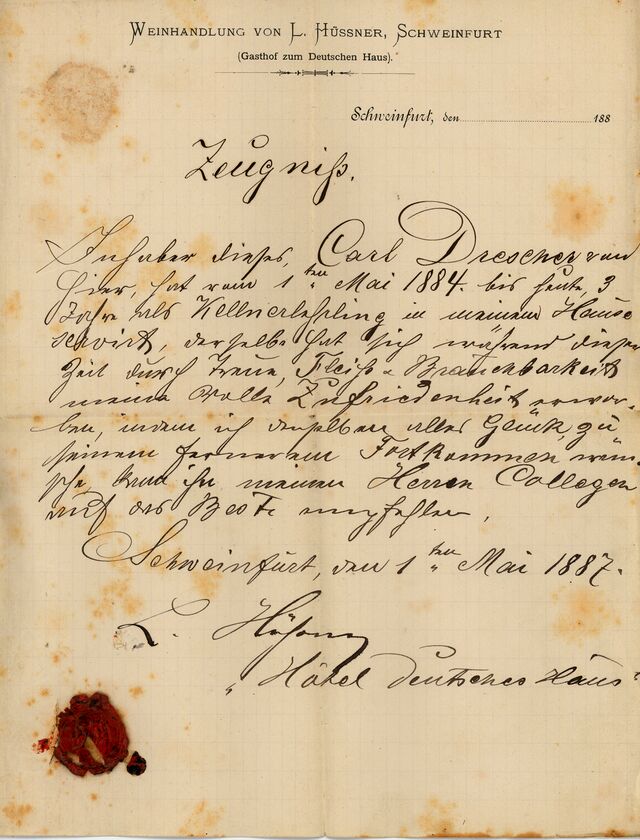 WEINHANDLUNG VON L. HÜSSNER, SCHWEINFURT
(Gasthof zum Deutschen Haus).
Schweinfurt, den 188
Zeugniß.
Inhaber dieses, Carl Drescher von
hier, hat vom 1ten Mai 1884. bis heute, 3
Jahre als Kellnerlehrling in meinem Hause
servirt, derselbe hat sich während dieser
Zeit durch Treue, Fleiß & Brauchbarkeit
meine volle Zufriedenheit erwor-
ben, indem ich demselben alles Glück, zu
seinem ferneren Fortkommen wün-
sche, kann ihn meinen Herren Collegen
auf das Beste empfehlen,
Schweinfurt, den 1ten Mai 1887.
L. Hüssner
"Hôtel Deutsches Haus"